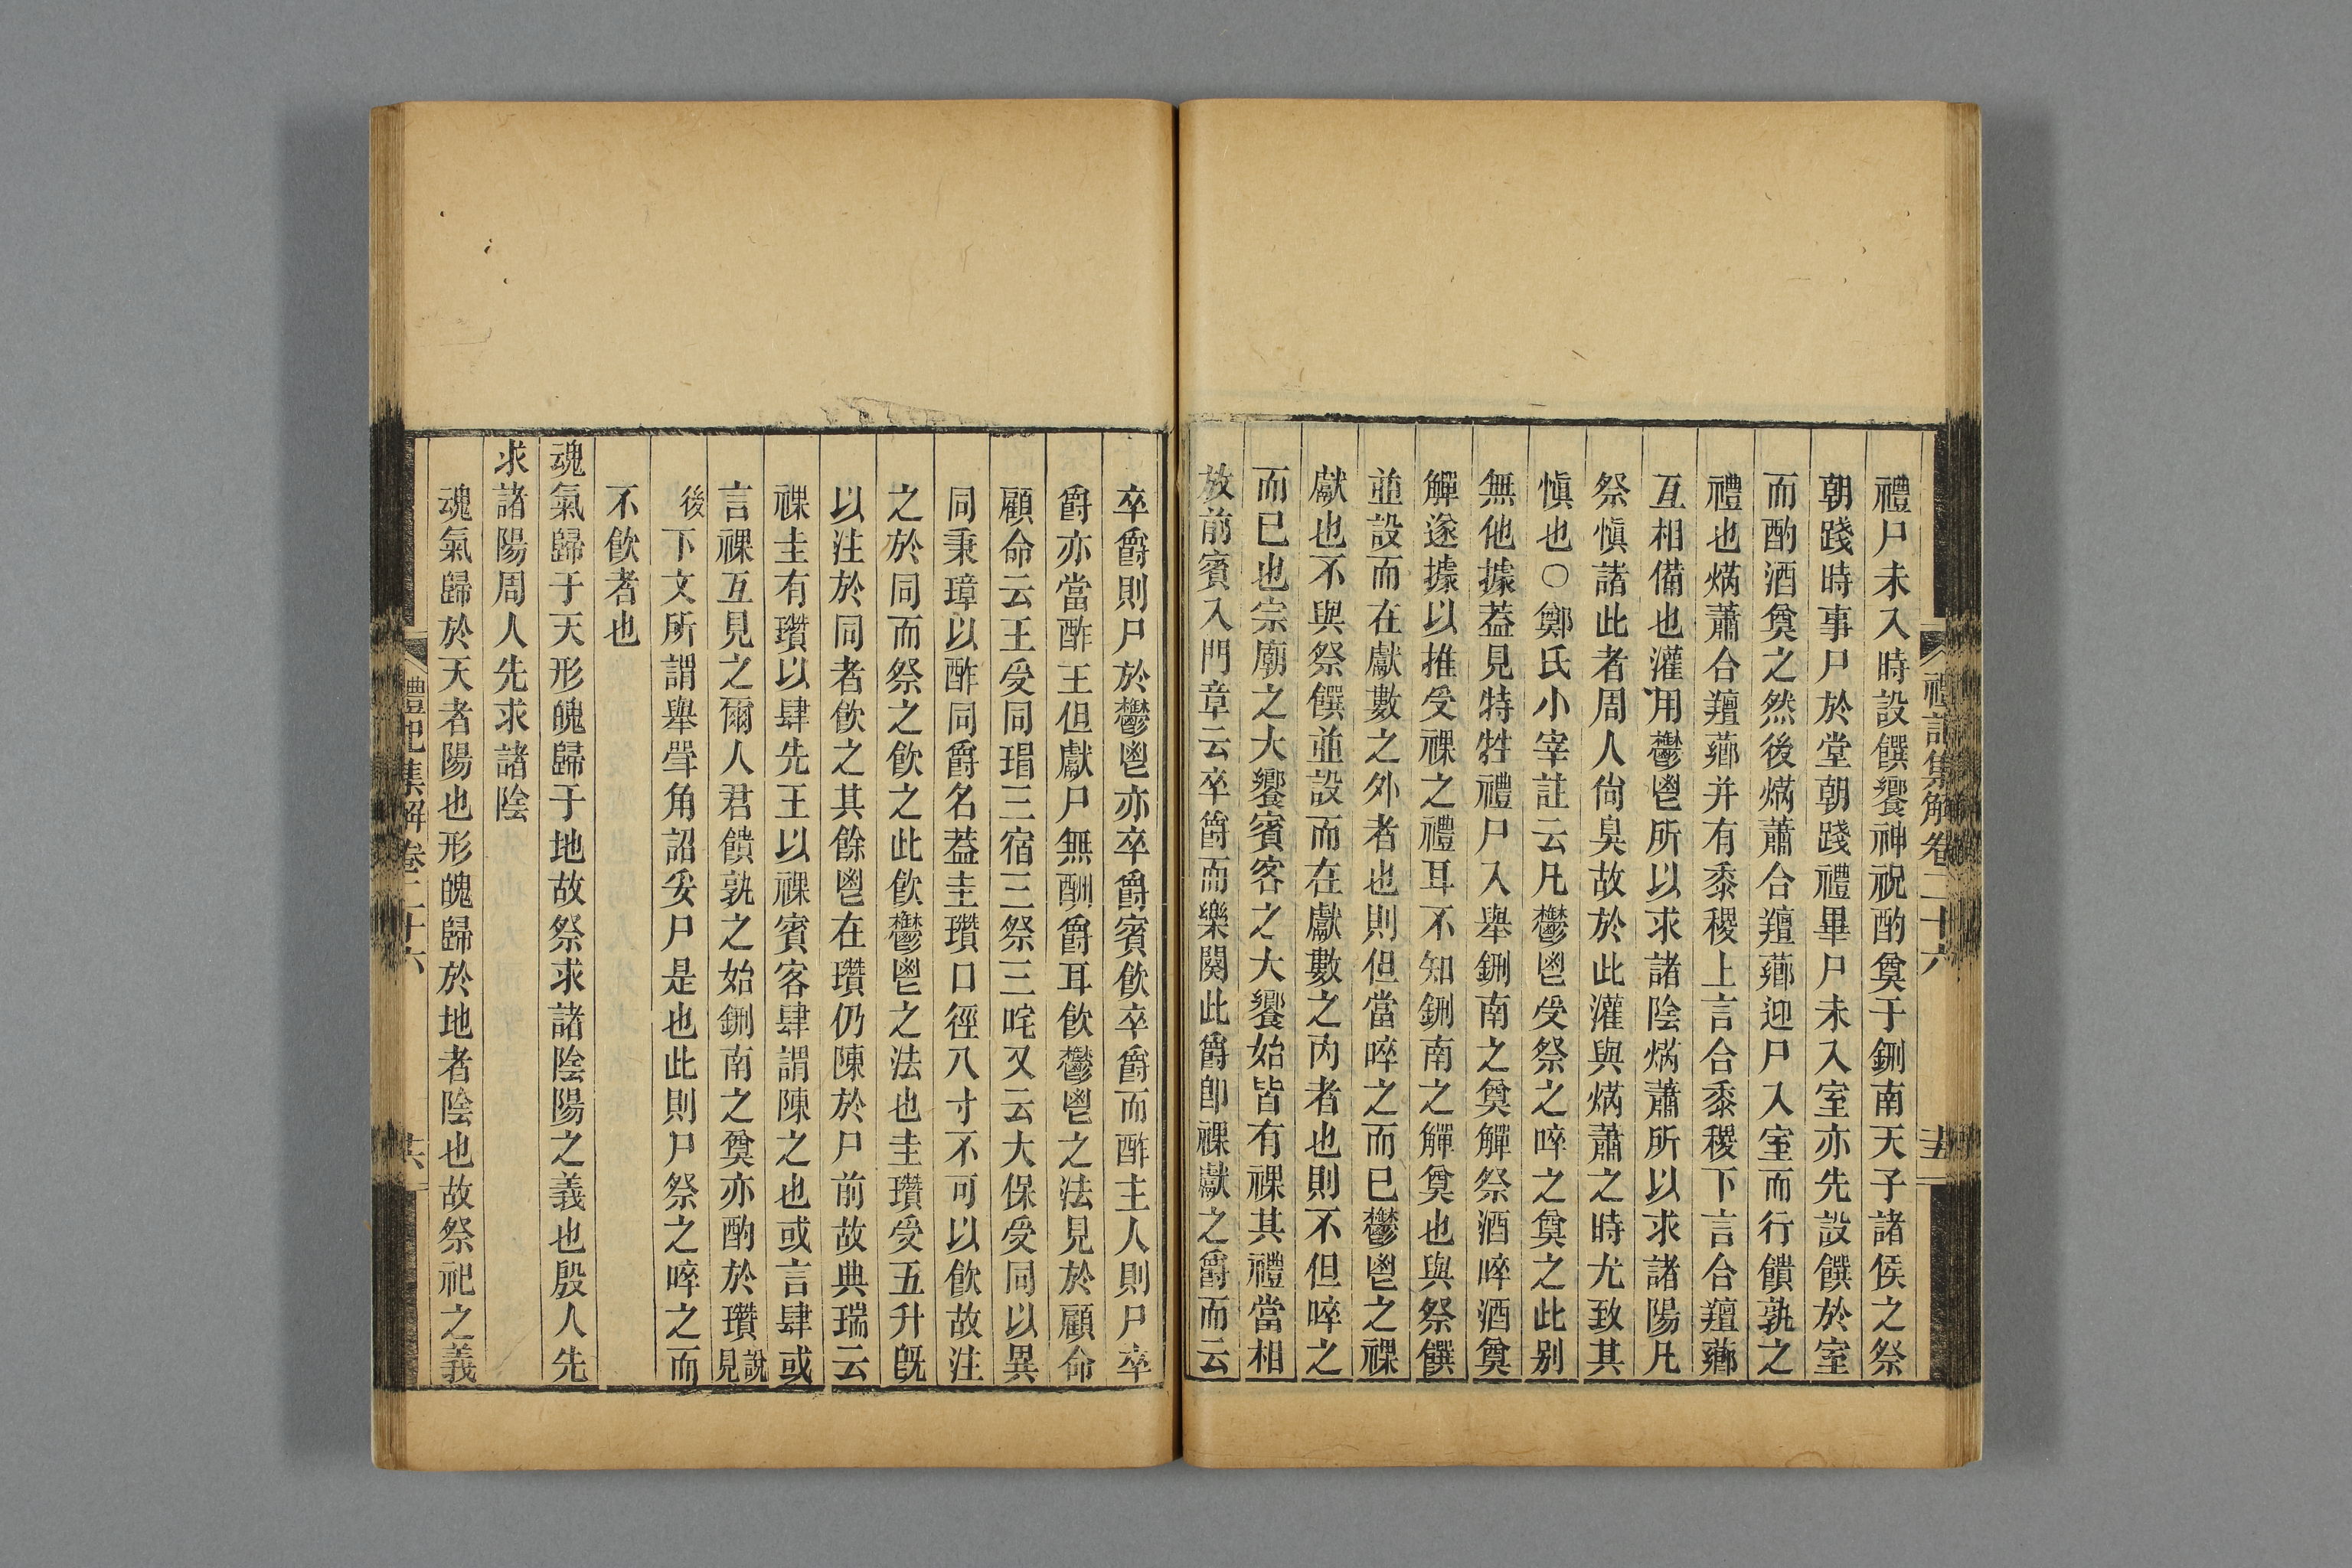 禮記集解卷二十六
禮尸未入時設饌饗神祝酌奠于鉶南天子諸侯之祭
朝踐時事尸於堂朝踐禮畢尸未入室亦先設饌於室
而酌酒奠之然後焫蕭合羶薌迎尸入室而行饋孰之
禮也焫蕭合羶薌并有黍稷上言合黍稷下言合羶薌
互相備也灌用鬱鬯所以求諸陰焫蕭所以求諸陽凡
祭慎諸此者周人尙臭故於此灌與焫蕭之時尤致其
慎也○鄭氏小宰註云凡鬱鬯受祭之啐之奠之此别
無他據葢見特牲禮尸入舉鉶南之奠觶祭酒啐酒奠
觶遂據以推受祼之禮耳不知鉶南之觶奠也與祭饌
並設而在獻數之外者也則但當啐之而已鬱鬯之祼
獻也不與祭饌並設而在獻數之內者也則不但啐之
而已也宗廟之大饗賓客之大饗始皆有祼其禮當相
放前賓入門章云卒爵而樂闋此爵卽祼獻之爵而云
卒爵則尸於鬱鬯亦卒爵賓飮卒爵而酢主人則尸卒
爵亦當酢王但獻尸無酬爵耳飮鬱鬯之法見於顧命
顧命云王受同瑁三宿三祭三咤又云大保受同以異
同秉璋以酢同爵名葢圭瓚口徑八寸不可以飮故注
之於同而祭之飮之此飮鬱鬯之法也圭瓚受五升旣
以注於同者飮之其餘鬯在瓚仍陳於尸前故典瑞云
祼圭有瓚以肆先王以祼賓客肆謂陳之也或言肆或
言祼互見之爾人君饋孰之始鉶南之奠亦酌於瓚說見
後下文所謂舉斝角詔妥尸是也此則尸祭之啐之而
不飮者也
魂氣歸于天形魄歸于地故祭求諸陰陽之義也殷人先
求諸陽周人先求諸陰
魂氣歸於天者陽也形魄歸於地者陰也故祭祀之義
禮記集解卷二十六